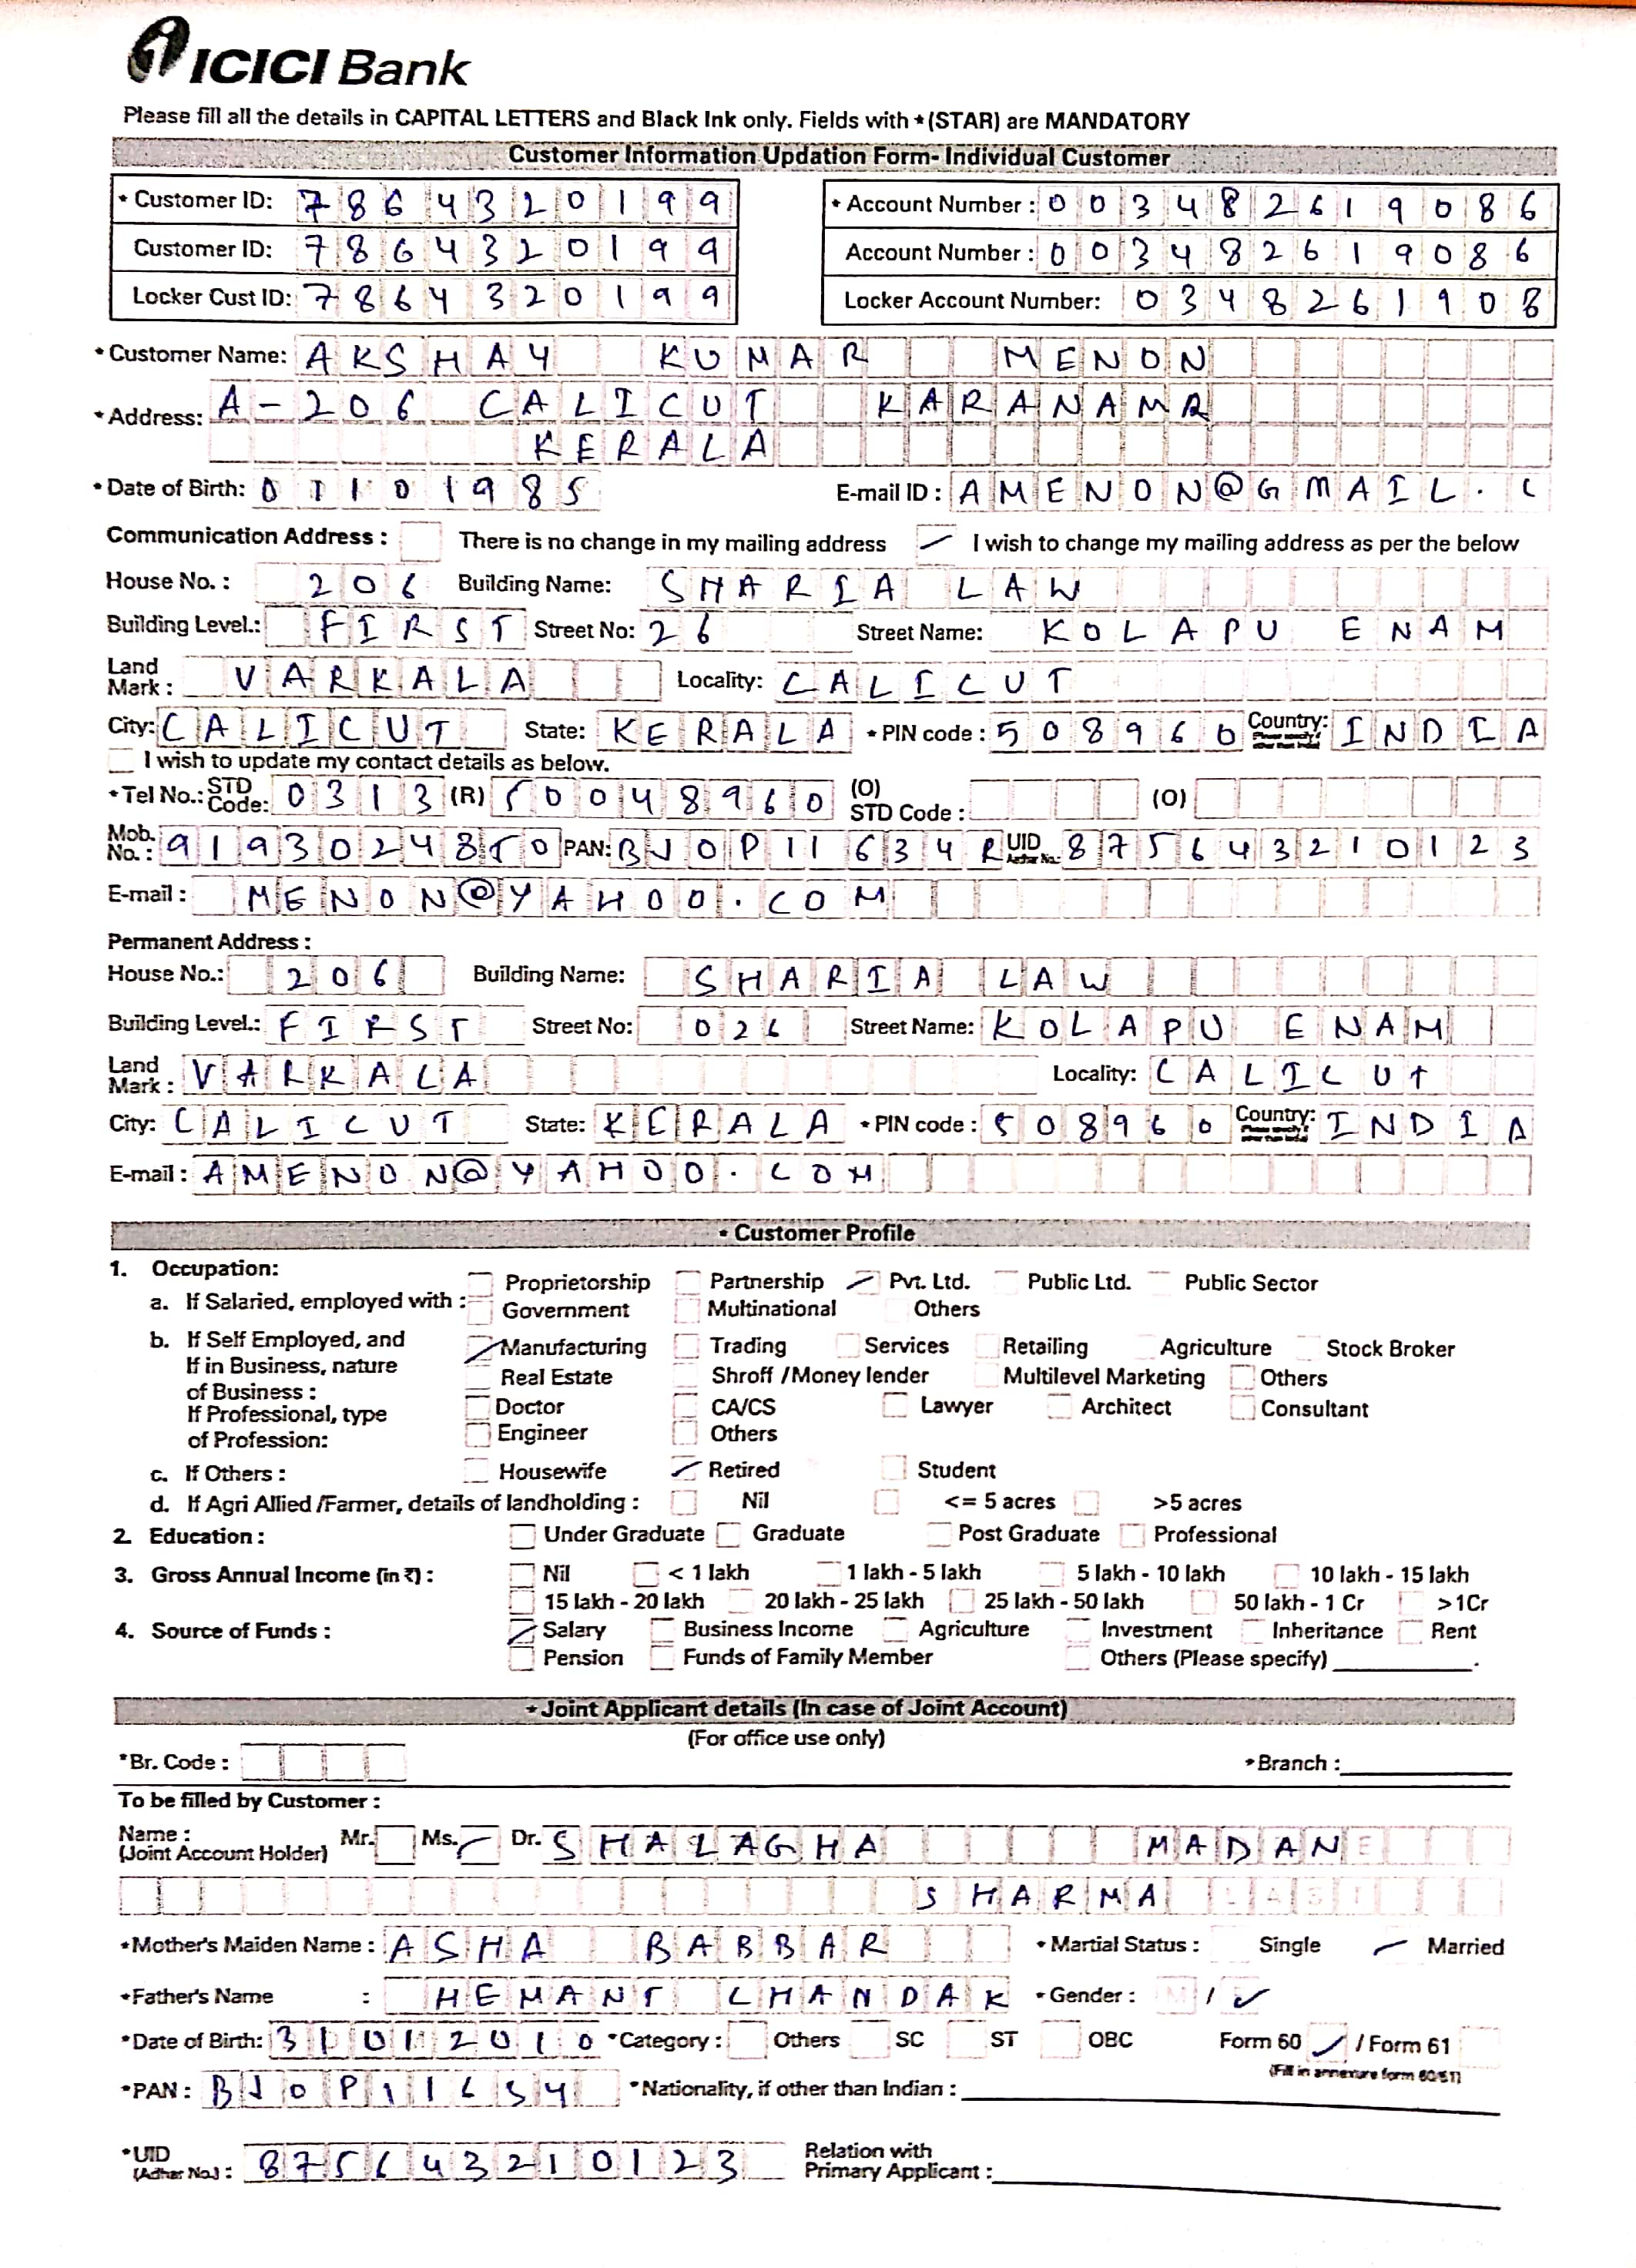 ICICI Bank
Please fill all the details in CAPITAL LETTERS and Black Ink only. Fields with * (STAR) are MANDATORY
Customer Information Updation Form- Individual Customer
* Customer ID: 7864320199 * Account Number : 003482619086
Customer ID: 7864320199 Account Number : 003482619086
Locker Cust ID: 7864320199 Locker Account Number: 0348261908
* Customer Name: AKSHAY KUMAR MENON
* Address: A-206 CALICUT KARANAMA
KERALA
* Date of Birth: 01101985 E-mail ID : AMENON@GMAIL.C
Communication Address : There is no change in my mailing address I wish to change my mailing address as per the below
House No. : 206 Building Name: SHARIA LAW
Building Level.: FIRST Street No: 26 Street Name: KOLAPU ENAM
Land Mark : VARKALA Locality: CALICUT
City: CALICUT State: KERALA * PIN code : 508960 Country: INDIA
I wish to update my contact details as below.
*Tel No.: STD Code: 0313 (R) 50048960 (O) STD Code : (O)
Mob. No. : 9193024850 PAN: BJOP11634R UID Adhar No.: 875643210123
E-mail : MENON@YAHOO.COM
Permanent Address :
House No.: 206 Building Name: SHARIA LAW
Building Level.: FIRST Street No: 026 Street Name: KOLAPU ENAM
Land Mark : VARKALA Locality: CALICUT
City: CALICUT State: KERALA * PIN code : 508960 Country: INDIA
E-mail : AMENON@YAHOO.COM
* Customer Profile
1. Occupation:
a. If Salaried, employed with : Proprietorship Partnership Pvt. Ltd. Public Ltd. Public Sector
Government Multinational Others
b. If Self Employed, and If in Business, nature of Business : Manufacturing Trading Services Retailing Agriculture Stock Broker
Real Estate Shroff /Money lender Multilevel Marketing Others
If Professional, type of Profession: Doctor CA/CS Lawyer Architect Consultant
Engineer Others
c. If Others : Housewife Retired Student
d. If Agri Allied /Farmer, details of landholding : Nil <= 5 acres >5 acres
2. Education : Under Graduate Graduate Post Graduate Professional
3. Gross Annual Income (in ₹) : Nil < 1 lakh 1 lakh - 5 lakh 5 lakh - 10 lakh 10 lakh - 15 lakh
15 lakh - 20 lakh 20 lakh - 25 lakh 25 lakh - 50 lakh 50 lakh - 1 Cr >1Cr
4. Source of Funds : Salary Business Income Agriculture Investment Inheritance Rent
Pension Funds of Family Member Others (Please specify)
* Joint Applicant details (In case of Joint Account)
(For office use only)
*Br. Code : * Branch :
To be filled by Customer :
Name : (Joint Account Holder) Mr. Ms. Dr. SHALAGHA MADAN
SHARMA
*Mother's Maiden Name : ASHA BABBAR * Martial Status : Single Married
*Father's Name : HEMANT CHANDAK * Gender : M /
*Date of Birth: 31012010 *Category : Others SC ST OBC Form 60 / Form 61
(Fill in annexure form 60/61)
*PAN : BJOP11654 *Nationality, if other than Indian :
*UID (Adhar No.) : 875643210123 Relation with Primary Applicant :